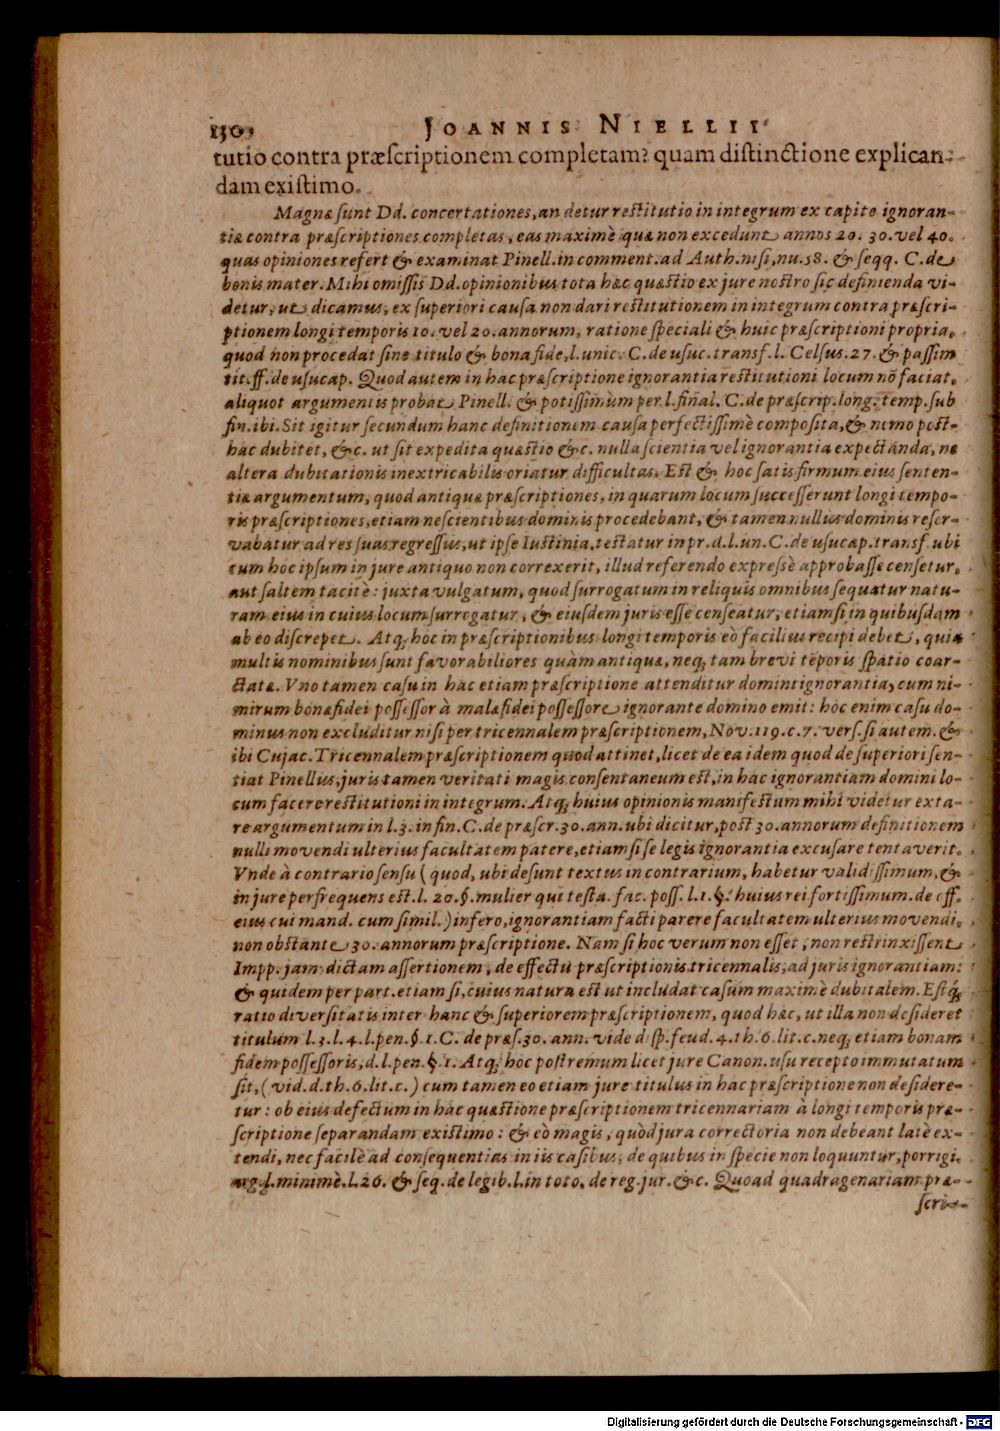 130,
JOANNIS NIELLII
tutio contra præſcriptionem completam? quam diſtinctione explican-
dam exiſtimo.
Magnæ ſunt Dd. concertationes, an detur reſtitutio in integrum ex capite ignoran-
tiæ contra præſcriptiones completas, eas maximè quæ non excedunt annos 20. 30. vel 40.
quas opiniones refert & examinat Pinell. in comment. ad Auth. niſi, nu. 58. & ſeqq. C. de
bonis mater. Mihi omiſſis Dd. opinionibus tota hæc quæſtio ex jure noſtro ſic definienda vi-
detur, ut dicamus, ex ſuperiori cauſa non dari reſtitutionem in integrum contra præſcri-
ptionem longi temporis 10. vel 20. annorum, ratione ſpeciali & huic præſcriptioni propria,
quod non procedat ſine titulo & bona fide, l. unic. C. de uſuc. transf. l. Celſus. 27. & paſſim
tit. ff. de uſucap. Quod autem in hac præſcriptione ignorantia reſtitutioni locum nō faciat,
aliquot argumentis probat Pinell. & potiſſimùm per l. final. C. de præſcrip. long. temp. ſub
fin. ibi. Sit igitur ſecundum hanc definitionem cauſa perfectiſſimè compoſita, & nemo poſt-
hac dubitet, &c. ut ſit expedita quæſtio &c. nulla ſcientia vel ignorantia expectanda, ne
altera dubitationis inextricabilis oriatur difficultas. Eſt & hoc ſatis firmum eius ſenten-
tiæ argumentum, quod antiquæ præſcriptiones, in quarum locum ſucceſſerunt longi tempo-
ris præſcriptiones, etiam neſcientibus dominis procedebant, & tamen nullus dominis reſer-
vabatur ad res ſuas regreſſus, ut ipſe Iuſtinia, teſtatur in pr. d. l. un. C. de uſucap. transf. ubi
cum hoc ipſum in jure antiquo non correxerit, illud referendo expreſsè approbaſſe cenſetur,
aut ſaltem tacitè: juxta vulgatum, quod ſurrogatum in reliquis omnibus ſequatur natu-
ram eius in cuius locum ſurrogatur, & eiuſdem juris eſſe cenſeatur, etiamſi in quibuſdam
ab eo diſcrepet. Atq; hoc in præſcriptionibus longi temporis eò facilius recipi debet, quia
multis nominibus ſunt favorabiliores quàm antiquæ, neq; tam brevi tēporis ſpatio coar-
ctatæ. Vno tamen caſu in hac etiam præſcriptione attenditur domini ignorantia, cum ni-
mirum bonæ fidei poſſeſſor à malæ fidei poſſeſſore ignorante domino emit: hoc enim caſu do-
minus non excluditur niſi per tricennalem præſcriptionem, Nov. 119. c. 7. verſ. ſi autem. &
ibi Cujac. Tricennalem præſcriptionem quod attinet, licet de ea idem quod de ſuperiori ſen-
tiat Pinellus, juris tamen veritati magis conſentaneum eſt, in hac ignorantiam domini lo-
cum facere reſtitutioni in integrum. Atq; huius opinionis manifeſtum mihi videtur exta-
re argumentum in l. 3. in fin. C. de præſcr. 30. ann. ubi dicitur, poſt 30. annorum definitionem
nulli movendi ulterius facultatem patere, etiamſi ſe legis ignorantia excuſare tentaverit.
Vnde à contrario ſenſu (quod, ubi deſunt textus in contrarium, habetur validiſſimum, &
in jure perfrequens eſt. l. 20. §. mulier qui teſta. fac. poſſ. l. 1. §. huius rei fortiſſimum. de off.
eius cui mand. cum ſimil.) infero, ignorantiam facti parere facultatem ulterius movendi,
non obſtante 30. annorum præſcriptione. Nam ſi hoc verum non eſſet, non reſtrinxiſſent
Impp. jam dictam aſſertionem, de effectu præſcriptionis tricennalis, ad juris ignorantiam:
& quidem per part. etiamſi, cuius natura eſt ut includat caſum maximè dubitalem. Eſtq;
ratio diverſitatis inter hanc & ſuperiorem præſcriptionem, quod hæc, ut illa non deſideret
titulum l. 3. l. 4. l. pen. §. 1. C. de præſ. 30. ann. vide diſp. feud. 4. th. 6. lit. c. neq; etiam bonam
fidem poſſeſſoris, d. l. pen. §. 1. Atq; hoc poſtremum licet jure Canon. uſu recepto immutatum
ſit, (vid. d. th. 6. lit. c.) cum tamen eo etiam jure titulus in hac præſcriptione non deſidere-
tur: ob eius defectum in hac quæſtione præſcriptionem tricennariam à longi temporis præ-
ſcriptione ſeparandam exiſtimo: & eò magis, quòd jura correctoria non debeant latè ex-
tendi, nec facilè ad conſequentias in iis caſibus, de quibus in ſpecie non loquuntur, porrigi.
arg. l. minimè. l. 26. & ſeq. de legib. l. in toto. de reg. jur. &c. Quoad quadragenariam præ-
ſcri-
Digitalisierung gefördert durch die Deutsche Forschungsgemeinschaft - DFG